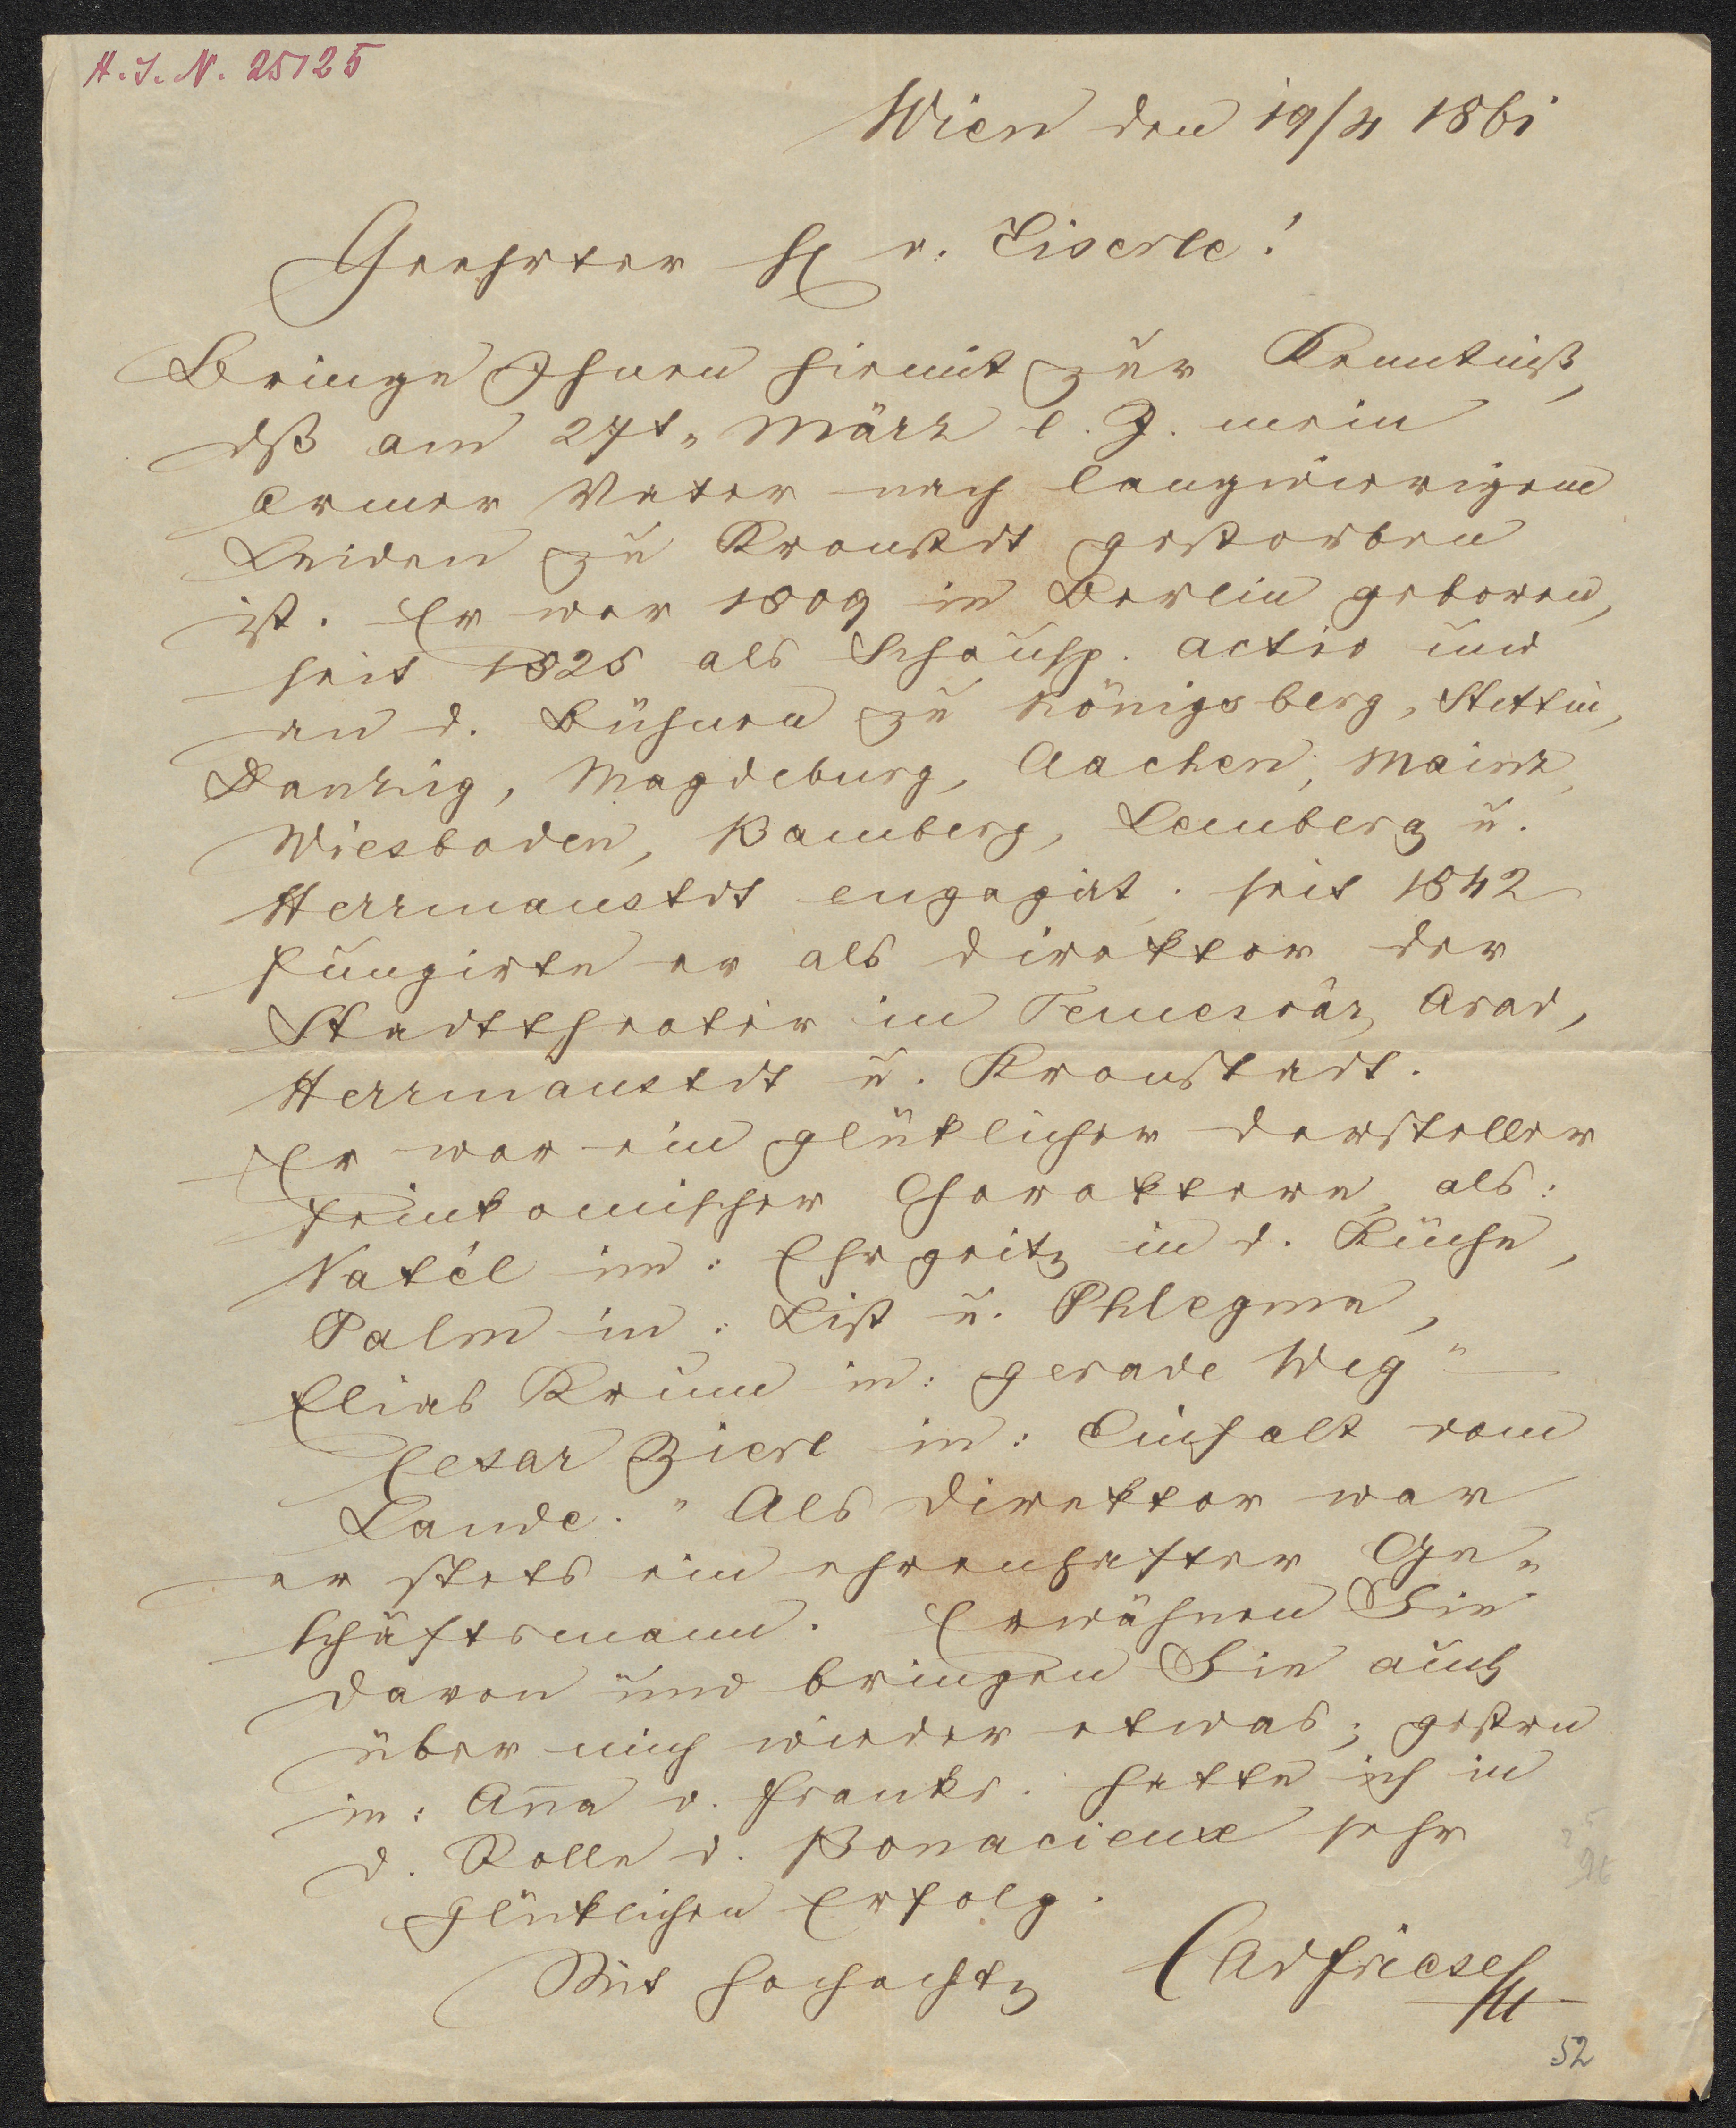 H.I.N. 25125
Wien den 19/4 1861
Geehrter H v. Eiserle!
Bringe Ihnen hiemit zur Kenntniß,
dß am 27t. März l. J. mein
armer Vater nach langwierigem
Leiden zu Kronstdt gestorben
ist. Er war 1809 in Berlin geboren,
seit 1825 als Schausp. activ und
an d. Bühnen zu Königsberg, Stettin,
Danzig, Magdeburg, Aachen, Mainz,
Wiesbaden, Bamberg, Lemberg u.
Herrmanstdt engagirt. seit 1842
fungirte er als Direktor der
Stadttheater in Temesvár, Arad,
Herrmanstdt u. Kronstadt.
Er war ein glüklicher Darsteller
feinkomischer Charaktere, als:
Vatél in: Ehrgeitz in d. Küche,
Palm in: List u. Phlegma,
Elias Krum in: gerade Weg"
Cesar Zierl in: Einfalt vom
Lande." Als Direktor war
er stets ein ehrenhafter Ge-
schäftsmann. Erwähnen Sie
davon und bringen Sie auch
über mich wieder etwas; gestern
in: Anna v. Frankr. hatte ich in
d. Rolle d. Bonacieux sehr
glüklichen Erfolg.
Mit Hochachtg CAdFriese
52